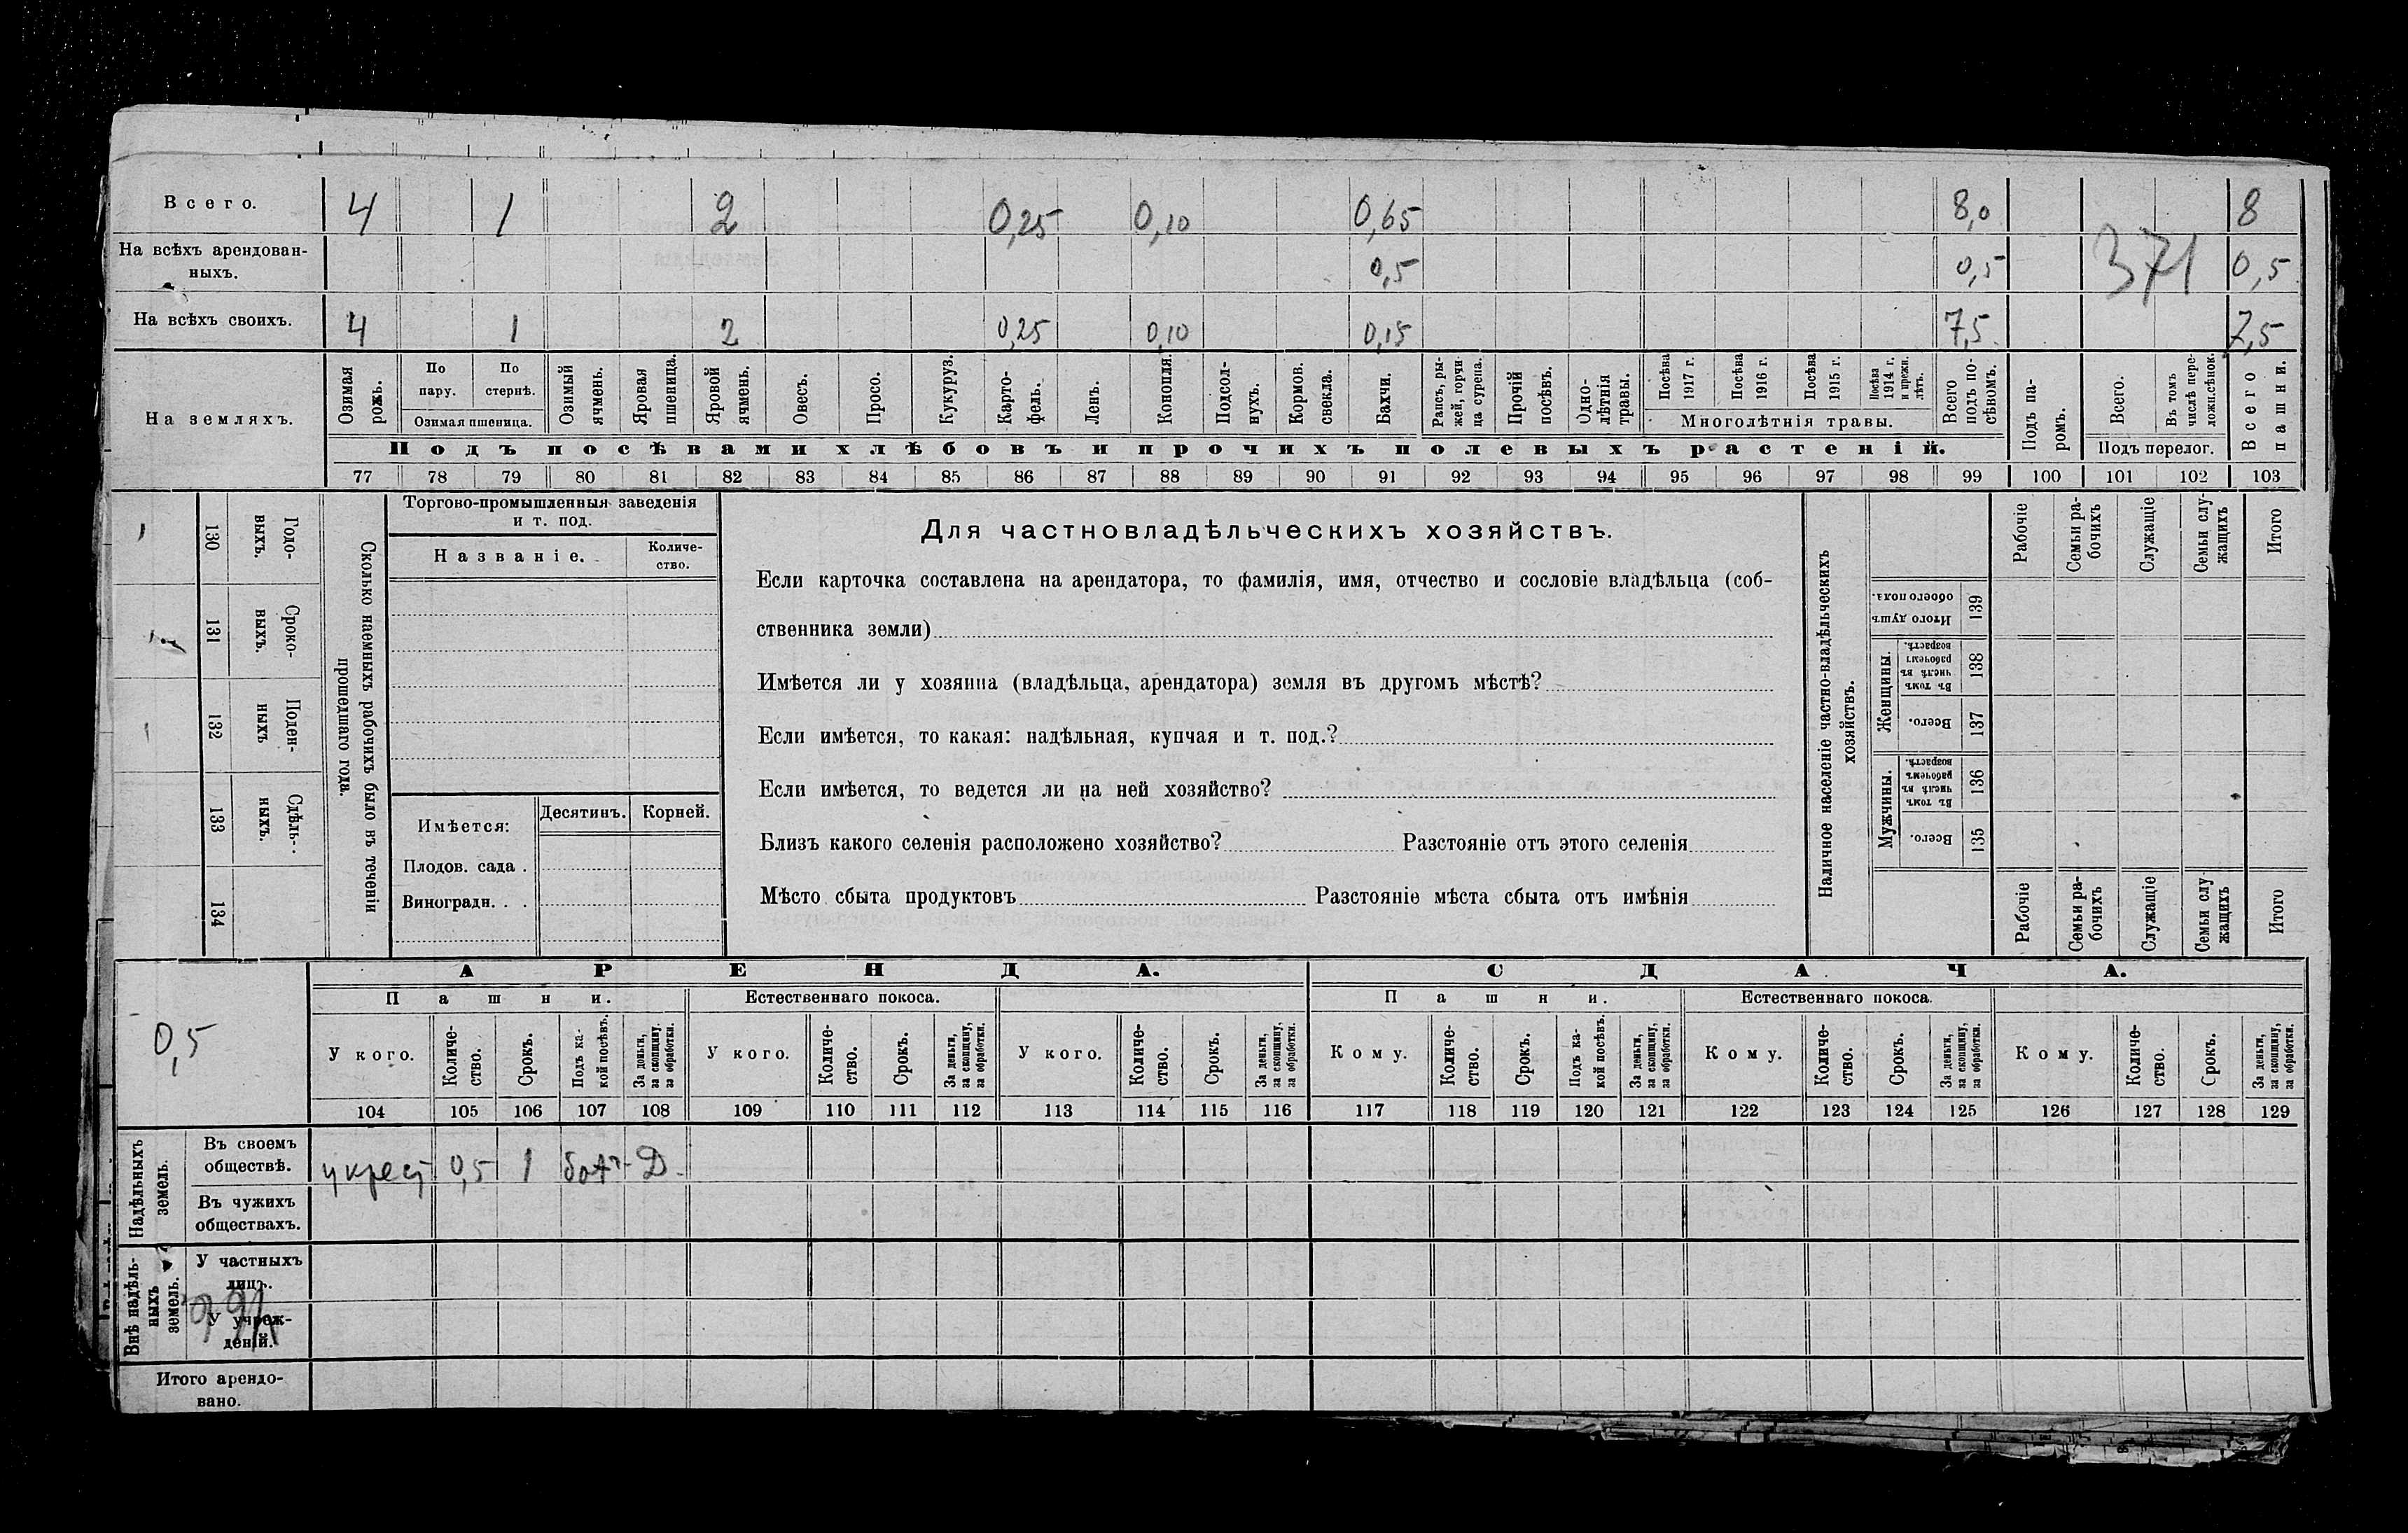 Всего. 4 1 2 0,25 0,10 0,65 8,0 8
На всѣхъ арендован-
ныхъ. 0,5 0,5 371 0,5
На всѣхъ своихъ. 4 1 2 0,25 0,10 0,15 7,5 7,5
На земляхъ.
Озимая рожь.
По пару.
По стернѣ.
Озимая пшеница.
Озимый ячмень.
Яровая пшеница.
Яровой ячмень.
Овесъ.
Просо.
Кукуруз.
Карто-
фель.
Ленъ.
Конопля.
Подсол-
нухъ.
Кормов. свекла.
Бахчи.
Рапсъ, ры-
жей, горчи-
ца сурепа.
Прочій посѣвъ.
Одно-
лѣтнія травы.
Посѣва 1917 г.
Посѣва 1916 г.
Посѣва 1915 г.
Посѣва 1914 г. и прежн. лѣтъ.
Многолѣтнія травы.
Всего подъ по-
сѣвомъ.
Подъ па-
ромъ.
Всего.
Въ томъ числѣ пере-
ложн. сѣнок.
Подъ перелог.
Всего пашни.
Подъ посѣвами хлѣбовъ и прочихъ полевыхъ растеній.
77 78 79 80 81 82 83 84 85 86 87 88 89 90 91 92 93 94 95 96 97 98 99 100 101 102 103
130 Годо-
выхъ.
131 Сроко-
ныхъ.
132 Поден-
ныхъ
133 Сдѣль-
ныхъ.
134
Сколько наемныхъ рабочихъ было въ теченіи
прошедшаго года.
Торгово-промышленныя заведенія
и т. под.
Названіе. Количе-
ство.
Имѣется: Десятинъ. Корней.
Плодов. сада .
Виноградн. . .
Для частновладѣльческихъ хозяйствъ.
Если карточка составлена на арендатора, то фамилія, имя, отчество и сословіе владѣльца (соб-
ственника земли)
Имѣется ли у хозяина (владѣльца, арендатора) земля въ другомъ мѣстѣ?
Если имѣется, то какая: надѣльная, купчая и т. под.?
Если имѣется, то ведется ли на ней хозяйство?
Близъ какого селенія расположено хозяйство? Разстояніе отъ этого селенія
Мѣсто сбыта продуктовъ Разстояніе мѣста сбыта отъ имѣнія
Наличное населеніе частно-владѣльческихъ
хозяйствъ.
Рабочіе
Семьи ра-
бочихъ
Служащіе
Семьи слу-
жащихъ
Итого
Итого душъ обоего пола. 139
Женщины.
Въ томъ числѣ въ рабочемъ возрастѣ. 138
Всего. 137
Мужчины.
Въ томъ числѣ въ рабочемъ возрастѣ. 136
Всего. 135
Рабочіе
Семьи ра-
бочихъ
Служащіе
Семьи слу
жащихъ
Итого
0,5
АРЕНДА. СДАЧА.
Пашни. Естественнаго покоса. Пашни. Естественнаго покоса.
У кого.
Количе-
ство.
Срокъ.
Подъ ка-
кой посѣвъ.
За деньги, за скопщину, за обработки.
У кого.
Количе-
ство.
Срокъ.
За деньги, за скопщину, за обработки.
У кого.
Количе-
ство.
Срокъ.
За деньги, за скопщину, за обработки.
Кому.
Количе-
ство.
Срокъ.
Подъ ка-
кой посѣвъ.
За деньги, за скопщину, за обработки.
Кому.
Количе-
ство.
Срокъ.
За деньги, за скопщину, за обработки.
Кому.
Количе-
ство.
Срокъ.
За деньги, за скопщину, за обработки.
104 105 106 107 108 109 110 111 112 113 114 115 116 117 118 119 120 121 122 123 124 125 126 127 128 129
Надѣльныхъ земель.
Въ своемъ
обществѣ. у крест 0,5 1 Д.
Въ чужихъ
обществахъ.
Внѣ надѣль-
ныхъ земель.
У частныхъ
лицъ.
У учреж-
деній.
Итого арендо-
вано.